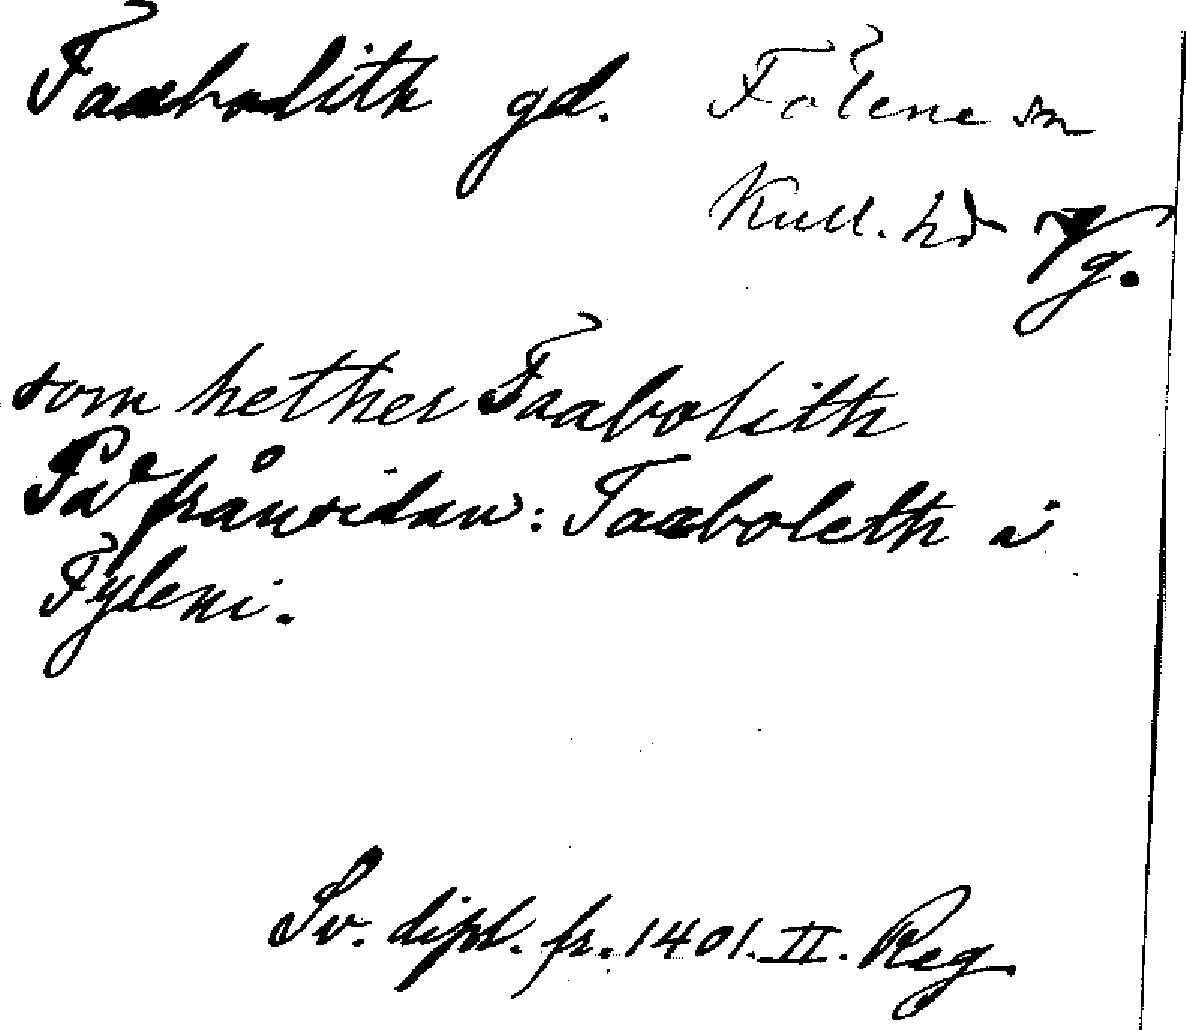 Faxabolith gd. Fölene sn
Kull. hd Vg.
som hether Faabolith
På frånsidan: Faaboleth i
Fyleni.
Sv. dipl. fr. 1401. II. Reg